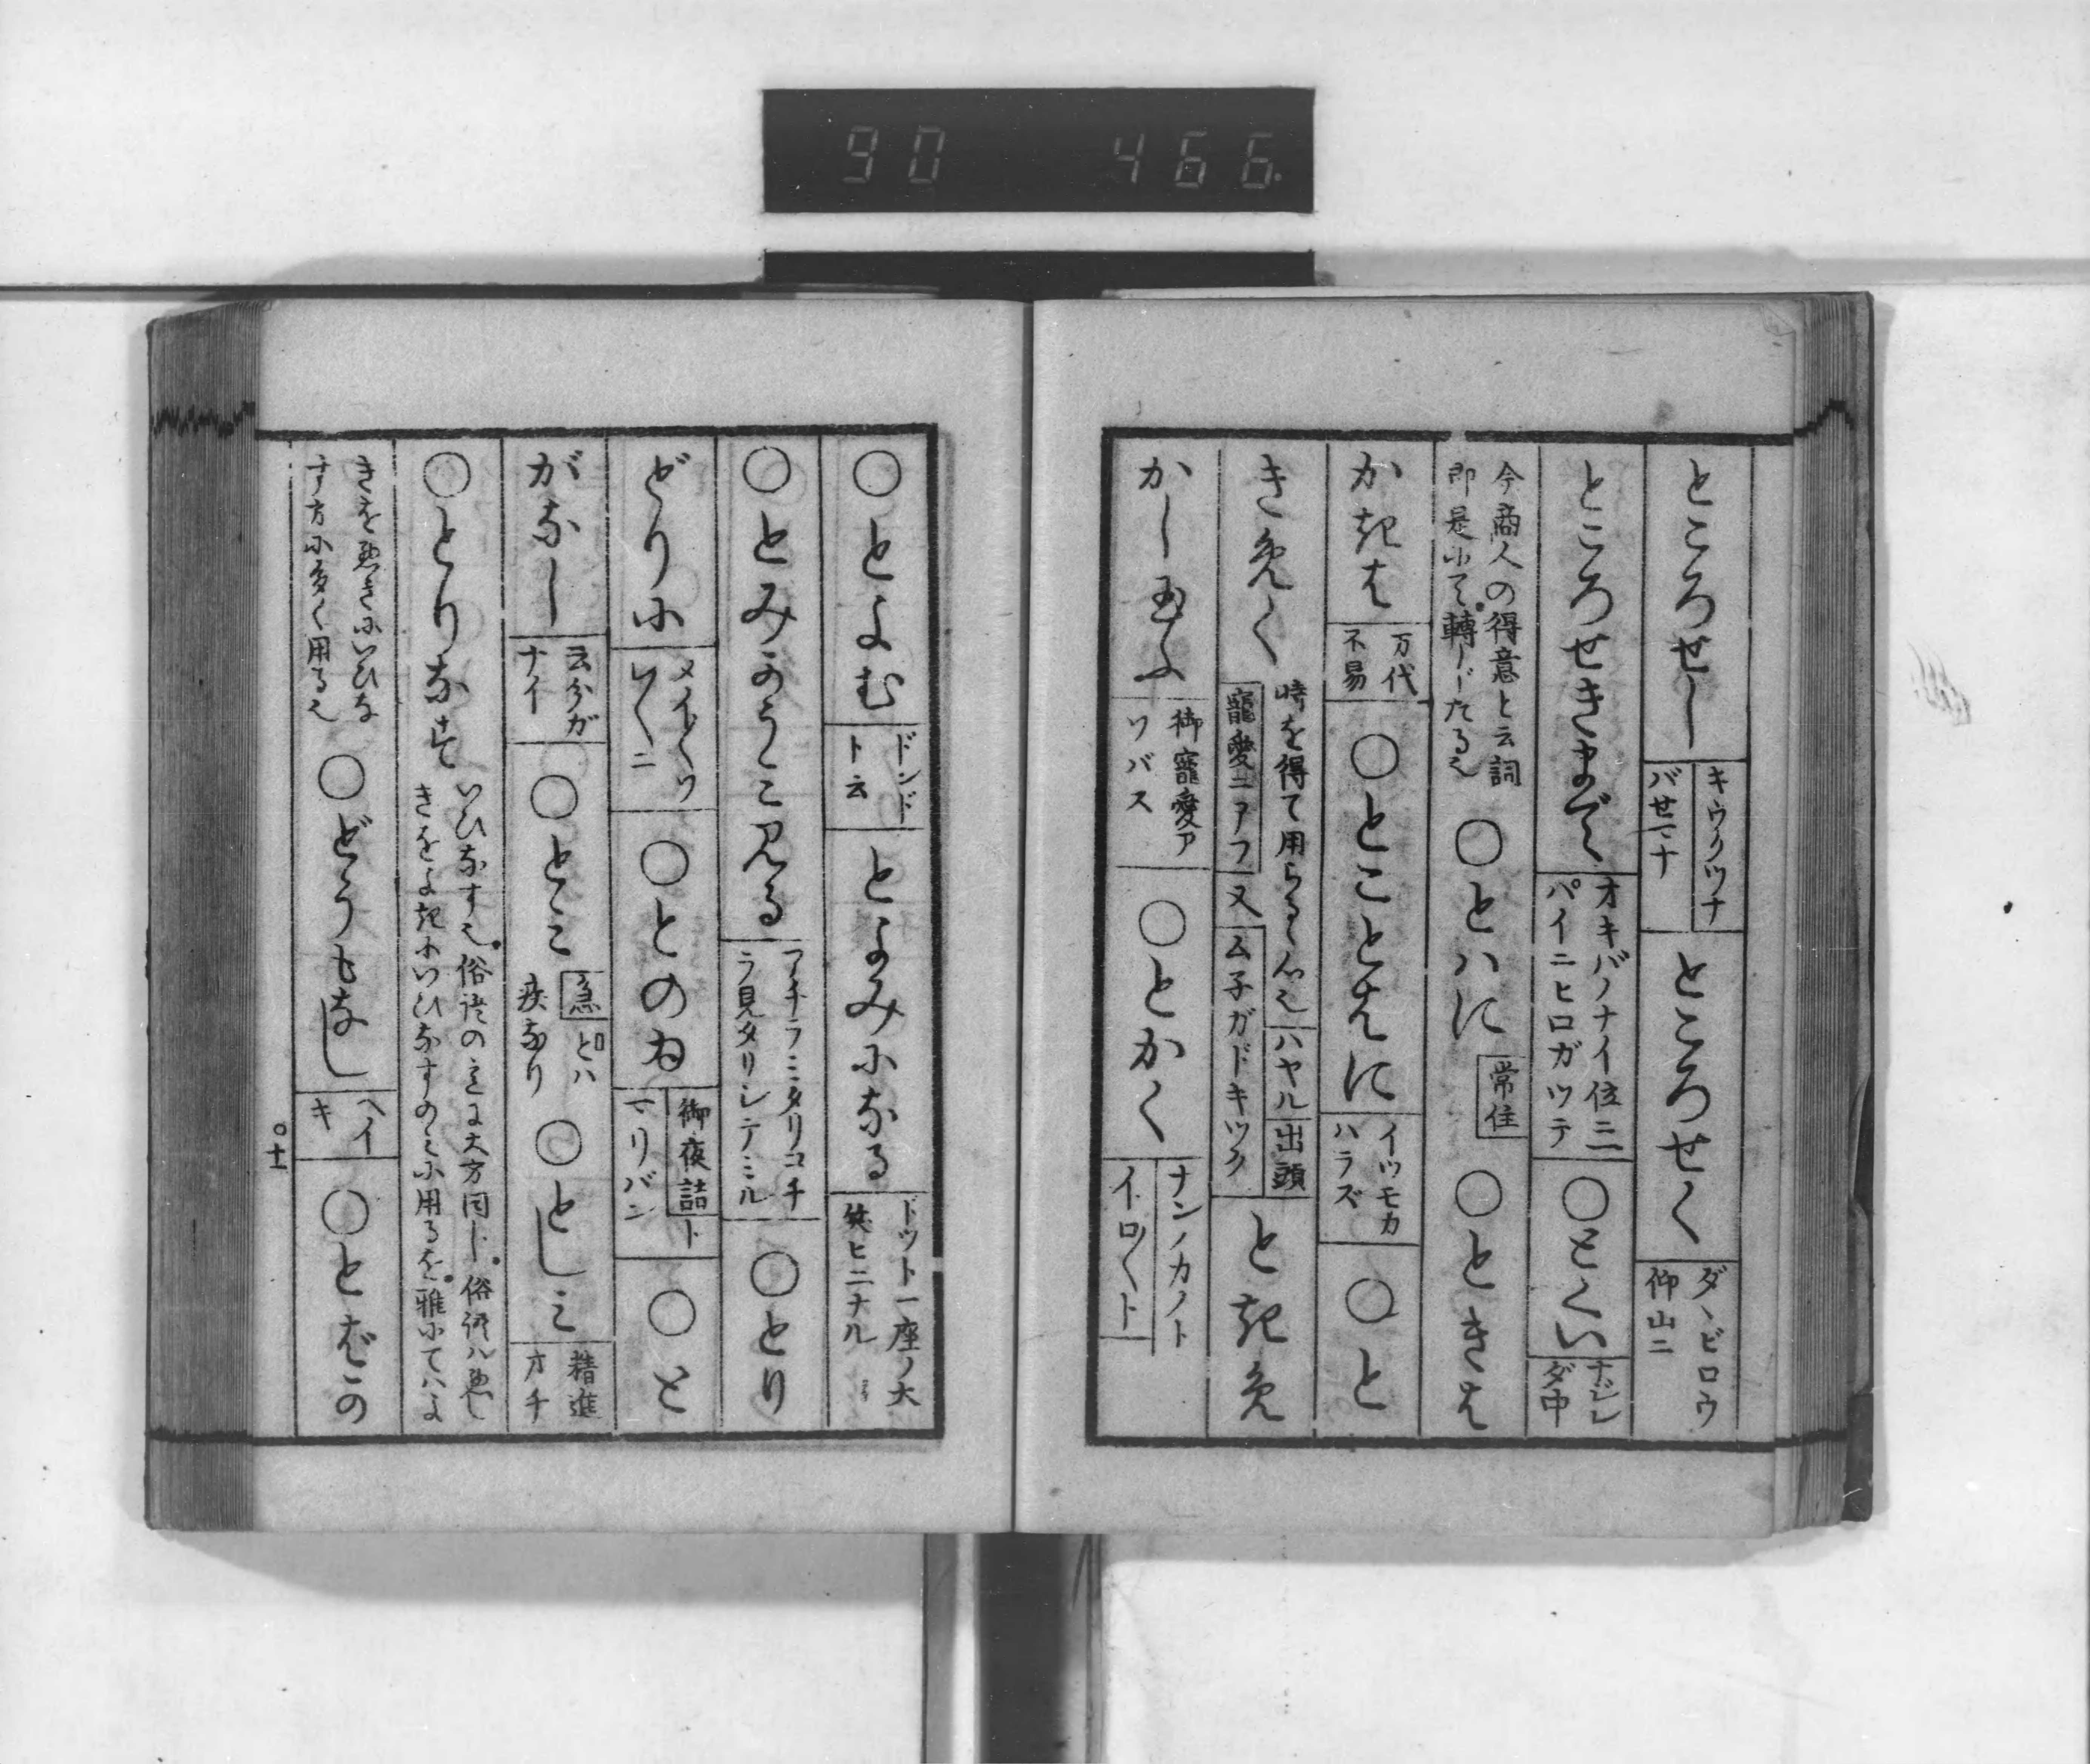 90 466
ところせし
キウクツナ
バせ
ところせく
ダヽビロウ
仰山ニ
ところせきまで
オキバノナイ位ニ
パイニヒロガツテ
○とくい
ナジミ
ダ中
今商人の得意と云詞
即是にて轉じたる也
○とハに
常住
○ときは
かきは
万代
不易
○とことはに
イツモカ
ハラズ
○と
きめく
時を得て用らるゝ心也
ハヤル
出頭
寵愛ニアフ
又
ム子ガドキツク
ときめ
かし玉ふ
御寵愛ア
ソバス
○とかく
ナンノカノト
イロ〱ト
○とよむ
ドンド
ト云
とよみになる
ドット一座ノ大
ヒニナル
○とみかうミ見る
アチラミタリコチ
ラ見タリシテミル
○とり
どりに
メイ〱ソ
レ〱ニ
○とのね
御夜詰
ト
リバン
○と
がなし
云分ガ
ナイ
○とミ
急
とハ
疾なり
○としミ
精進
オチ
○とりなす
いひなす也俗語の意に大方同じ俗語ハ悪し
きをよきにいひなすのミに用るを雅にてハよ
きを悪きにいひな
す方に多く用る也
○どうもなし
ヘイ
キ
○とばこの
○十一